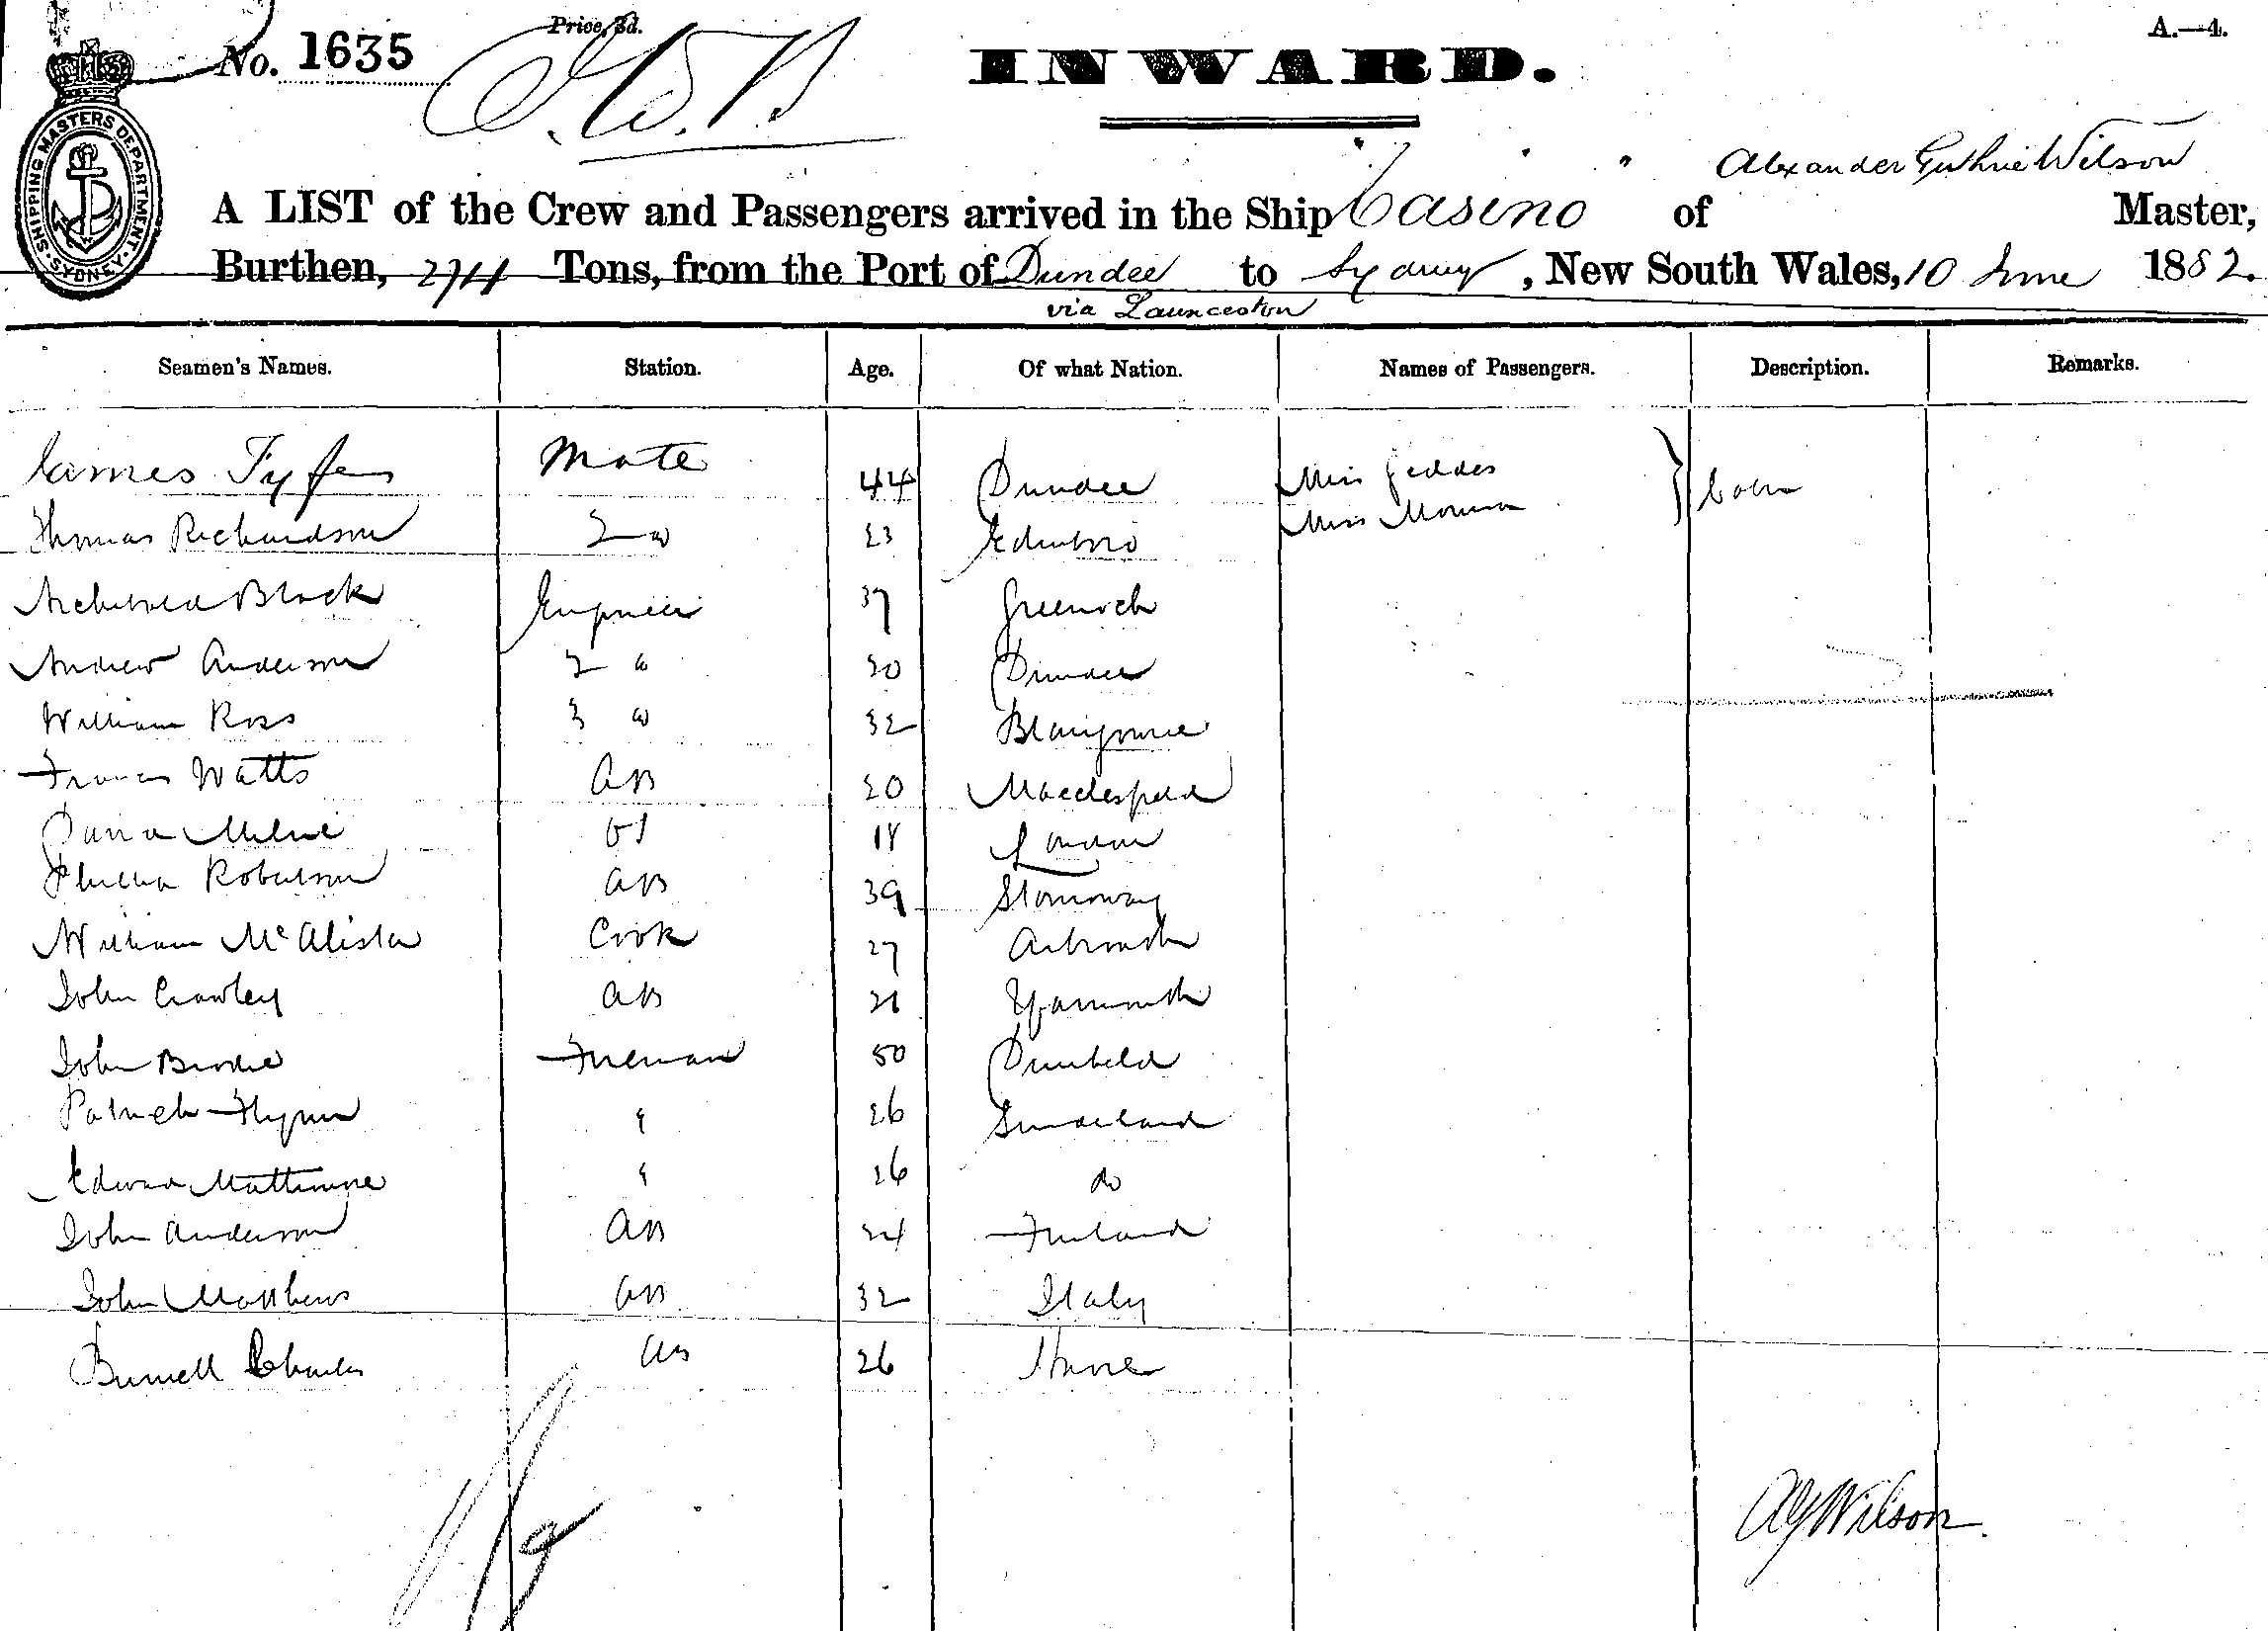 No. 1635
Price, 3d.
G.W.B
INWARD.
A.—4.
SHIPPING MASTERS DEPARTMENT
SYDNEY
Alexander Guthrie Wilson
A LIST of the Crew and Passengers arrived in the Ship Casino of Master,
Burthen, 274 Tons, from the Port of Dundee to Sydney, New South Wales, 10 June 1882.
via Launceston
Seamen's Names. Station. Age. Of what Nation. Names of Passengers. Description. Remarks.
James Fyfe Mate 44 Dundee Miss Geddes
Thomas Richardson 2 " 23 Edinboro Miss
Archibald Black Engineer 37 Greenock
Andrew Anderson 2 " 30 Dundee
William Ross 3 " 32 Blairgowrie
Francis Watts AB 20 Macclesfield
David Milne OS 18 London
Robertson AB 39 Stornoway
William McAlister Cook 27 Arbroath
John Crowley AB 21 Yarmouth
John Brodie Fireman 50 Dunkeld
Patrick Flynn " 26 Sunderland
Edward Mattimore " 26 do
John Anderson AB 24 Finland
John Matthews AB 32 Italy
Burnell Charles AB 26
AGWilson